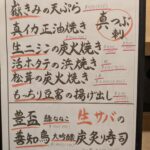 嶽きみの天ぷら
真イカ正油焼き
真つぶ刺
生ニシンの炭火焼き
活ホタテの浜焼き
松茸の炭火焼き
もっちり豆富の揚げ出し
豊盃 ななこ
善知鳥 大吟醸
生サバの
炭炙り寿司